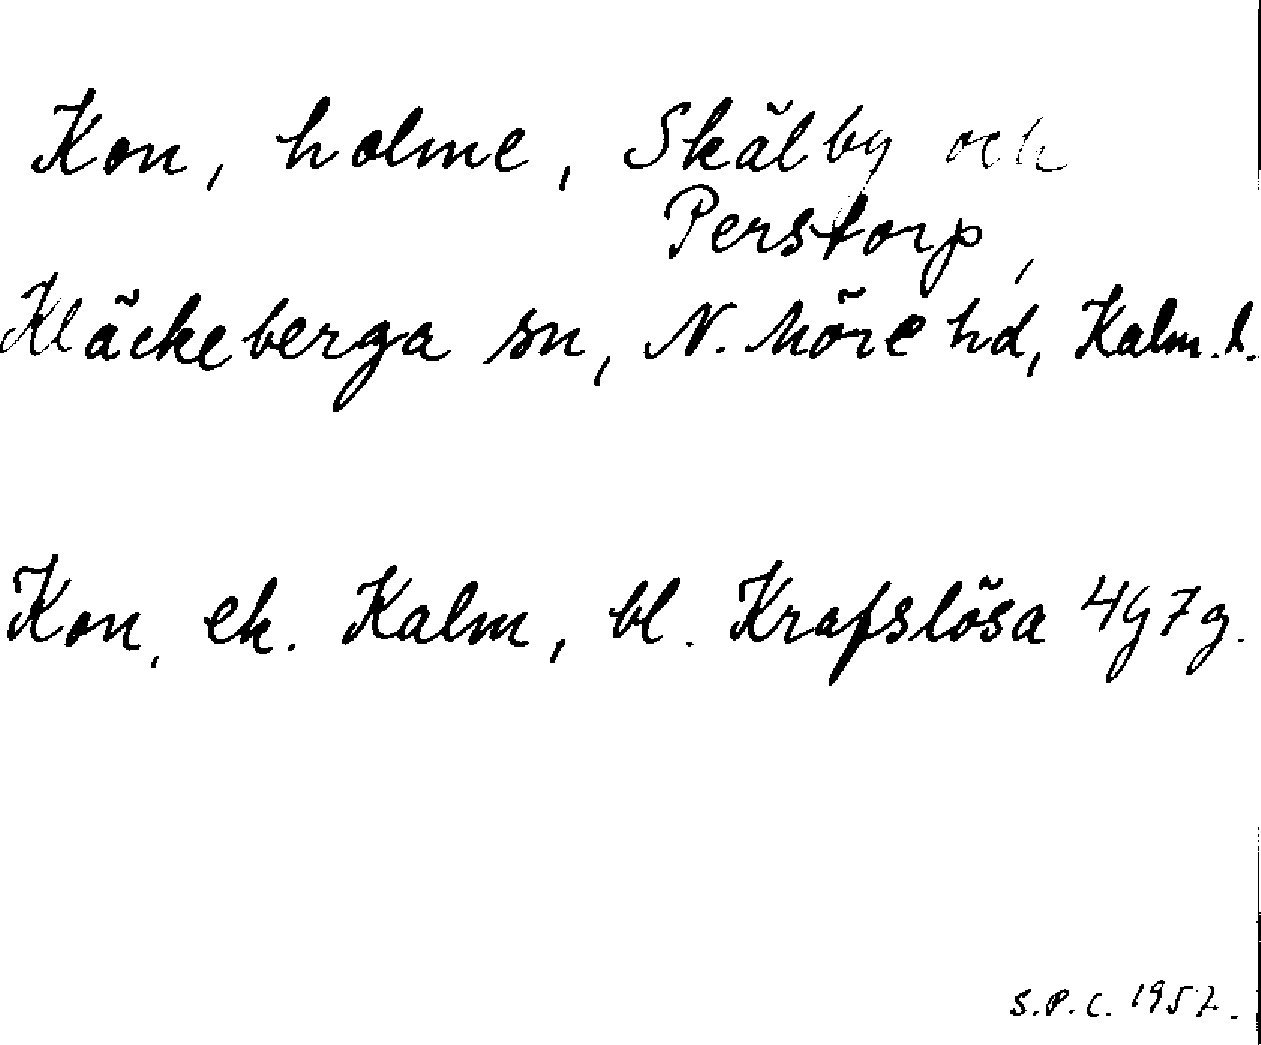 Kon, holme, Skälby och
Perstorp,
Kläckeberga sn, N. Möre hd, Kalm. l.
Kon, ek. Kalm, bl. Krafslösa 4g7g.
S.P.C. 1952.